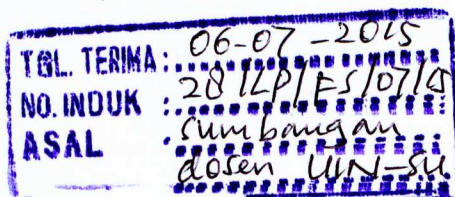 TGL. TERIMA : 06-07-2015
NO. INDUK : 28/LP/ES/07/15
ASAL : sumbangan
dosen UIN-SU